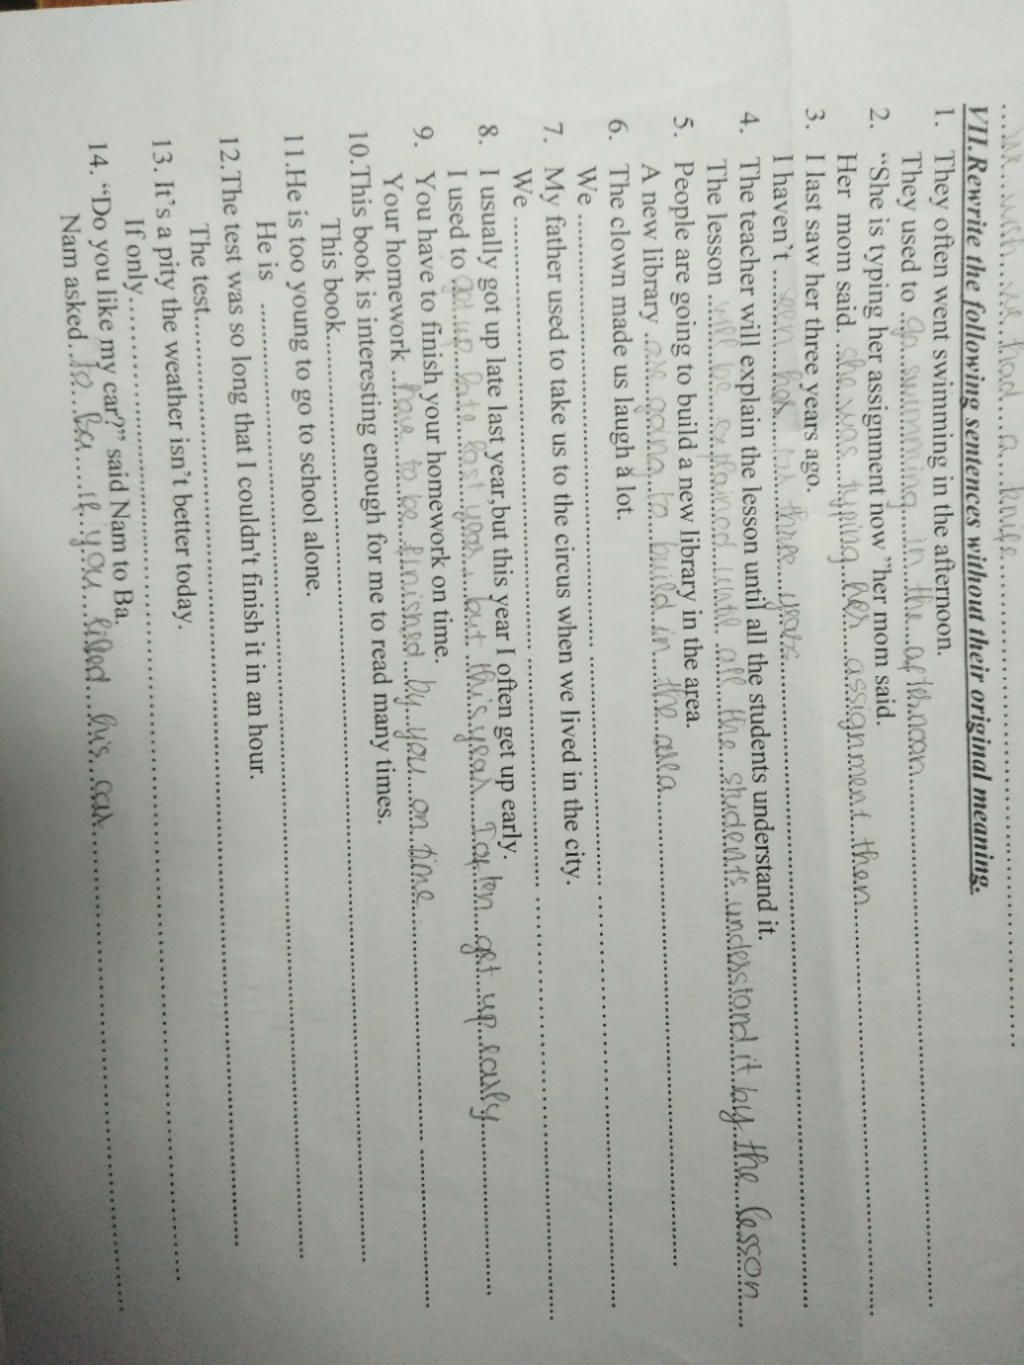 ....... wish ... we ... had .... a .... knife ..............................
VII.Rewrite the following sentences without their original meaning.
1. They often went swimming in the afternoon.
They used to ..go...swimming....in...the...afternoon..............................
2. “She is typing her assignment now”her mom said.
Her mom said. ..she was...typing..her....assignment...then..............................
3. I last saw her three years ago.
I haven’t ....seen...her.......three...years..............................
4. The teacher will explain the lesson until all the students understand it.
The lesson ..will...be...explained...until...all...the....students...understand it by..the...lesson....
5. People are going to build a new library in the area.
A new library ..are going...to....build..in...the..area..............................
6. The clown made us laugh a lot.
We ..............................
7. My father used to take us to the circus when we lived in the city.
We ..............................
8. I usually got up late last year,but this year I often get up early.
I used to ..get up...late....last year....but...this year....I often...get up early..............................
9. You have to finish your homework on time.
Your homework ....have...to be...finished...by...you...on time..............................
10.This book is interesting enough for me to read many times.
This book..............................
11.He is too young to go to school alone.
He is ..............................
12.The test was so long that I couldn't finish it in an hour.
The test..............................
13. It’s a pity the weather isn’t better today.
If only..............................
14. “Do you like my car?” said Nam to Ba.
Nam asked...to...Ba....if..you...liked...his...car..............................